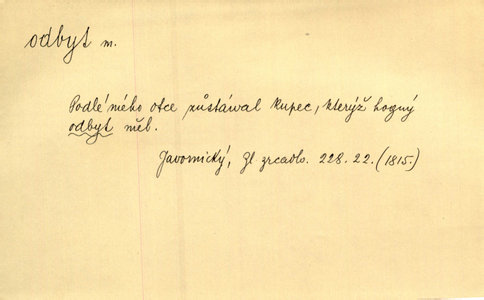 odbyt m.
Podlé mého otce zůstáwal kupec, kterýž hogný
odbyt měl.
Javornický, Zl. zrcadlo. 228. 22. (1815.)